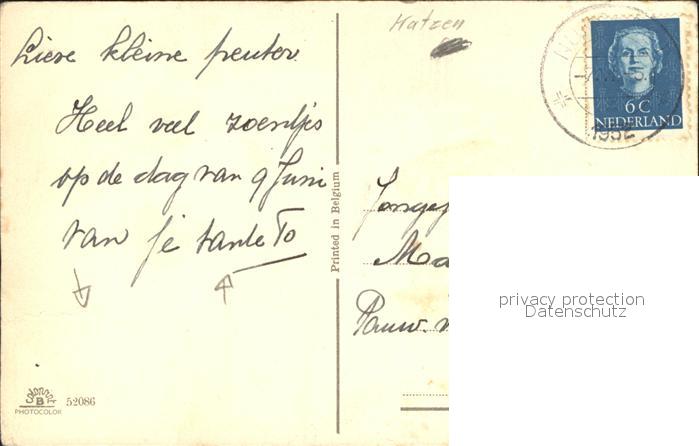 Lieve kleine peuter
Heel veel zoentjes
op de dag van 9 Juni
van je tante To
Katzen
6 C
NEDERLAND
1952
Printed in Belgium
Ma
Pauw.
privacy protection
Datenschutz
COLORPRINT
B
PHOTOCOLOR
52086